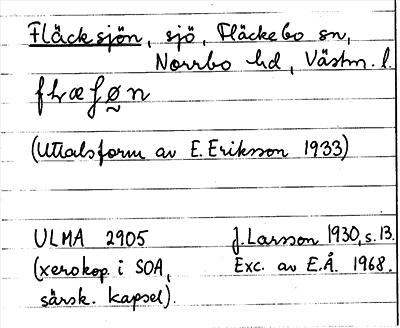 Fläcksjön, sjö, Fläckebo sn,
Norrbo hd, Västm. l.
flæʃø̰n
(Uttalsform av E. Eriksson 1933)
ULMA 2905 J. Larsson 1930, s. 13.
(xerokop. i SOA, Exc. av E.Å. 1968.
särsk. kapsel).